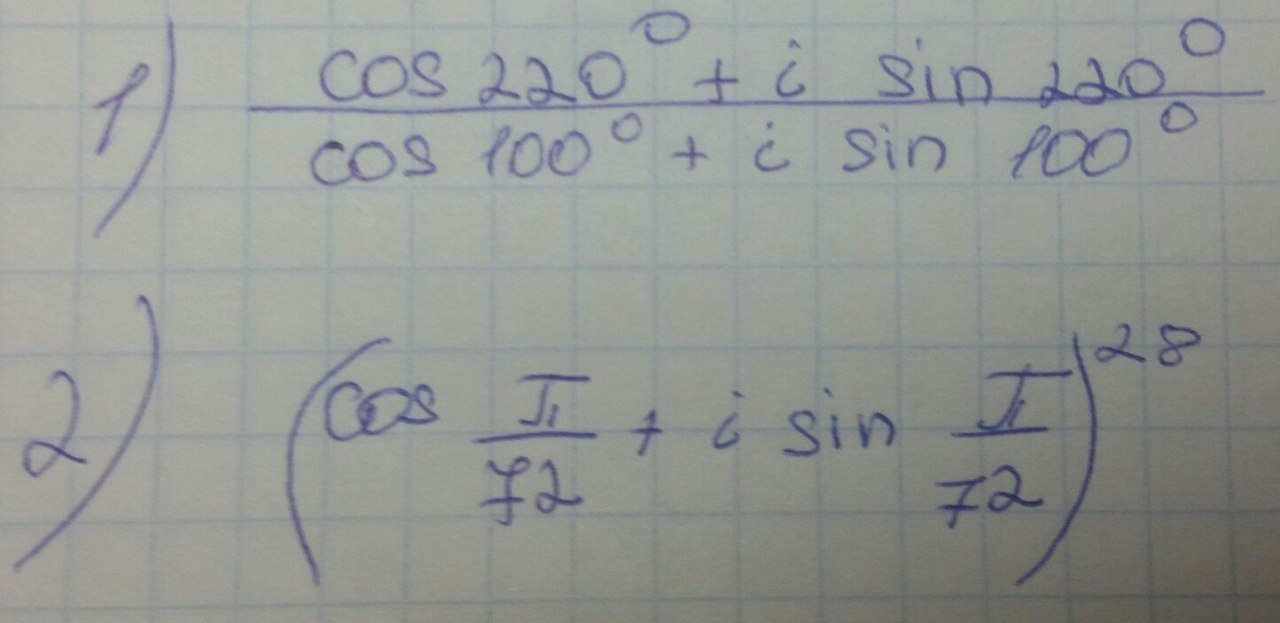 1) cos 220° + i sin 220°
cos 100° + i sin 100°
2) (cos π/72 + i sin π/72)^28